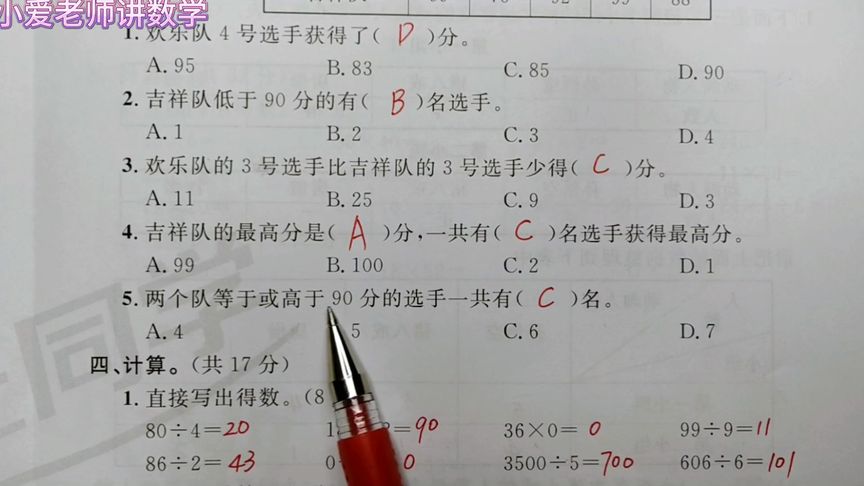 小爱老师讲数学
1. 欢乐队 4 号选手获得了( D )分。
A. 95 B. 83 C. 85 D. 90
2. 吉祥队低于 90 分的有( B )名选手。
A. 1 B. 2 C. 3 D. 4
3. 欢乐队的 3 号选手比吉祥队的 3 号选手少得( C )分。
A. 11 B. 25 C. 9 D. 3
4. 吉祥队的最高分是( A )分,一共有( C )名选手获得最高分。
A. 99 B. 100 C. 2 D. 1
5. 两个队等于或高于 90 分的选手一共有( C )名。
A. 4 5 C. 6 D. 7
四、计算。(共 17 分)
1. 直接写出得数。(8
80÷4=20 =90 36×0=0 99÷9=11
86÷2=43 0 0 3500÷5=700 606÷6=101